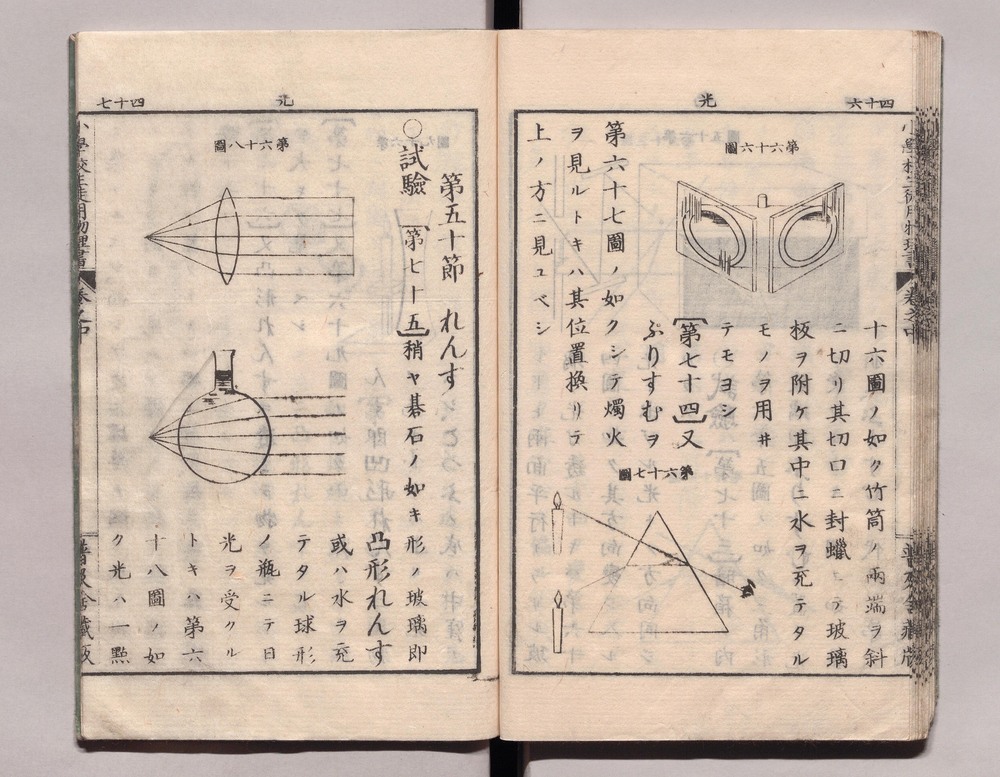 四十六
光
第六十六圖
十六圖ノ如ク竹筒ノ兩端ヲ斜
ニ切リ其切口ニ封蠟ニテ玻璃
板ヲ附ケ其中ニ水ヲ充テタル
モノヲ用井
テモヨシ
〔第七十四〕又
ぷりすむヲ
第六十七圖
第六十七圖ノ如クシテ燭火
ヲ見ルトキハ其位置換リテ
上ノ方ニ見ユベシ
四十七
光
第五十節 れんず
〇試驗〔第七十五〕稍ヤ碁石ノ如キ形ノ玻璃即
凸形れんず
或ハ水ヲ充
テタル球形
ノ瓶ニテ日
光ヲ受クル
トキハ第六
十八圖ノ如
ク光ハ一點
第六十八圖
小學校生徒用物理書
卷之中
普及舍藏版